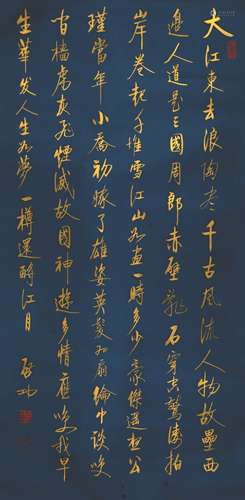 大江東去浪陶尽千古风流人物故壘西
邊人道是三國周郎赤壁乱石穿空驚濤拍
岸卷起千堆雪江山如画一時多少豪傑遥想公
瑾當年小喬初嫁了雄姿英發羽扇綸巾談笑
间檣虜灰飞煙滅故國神遊多情應笑我早
生華发人生如夢一樽還酹江月
启功